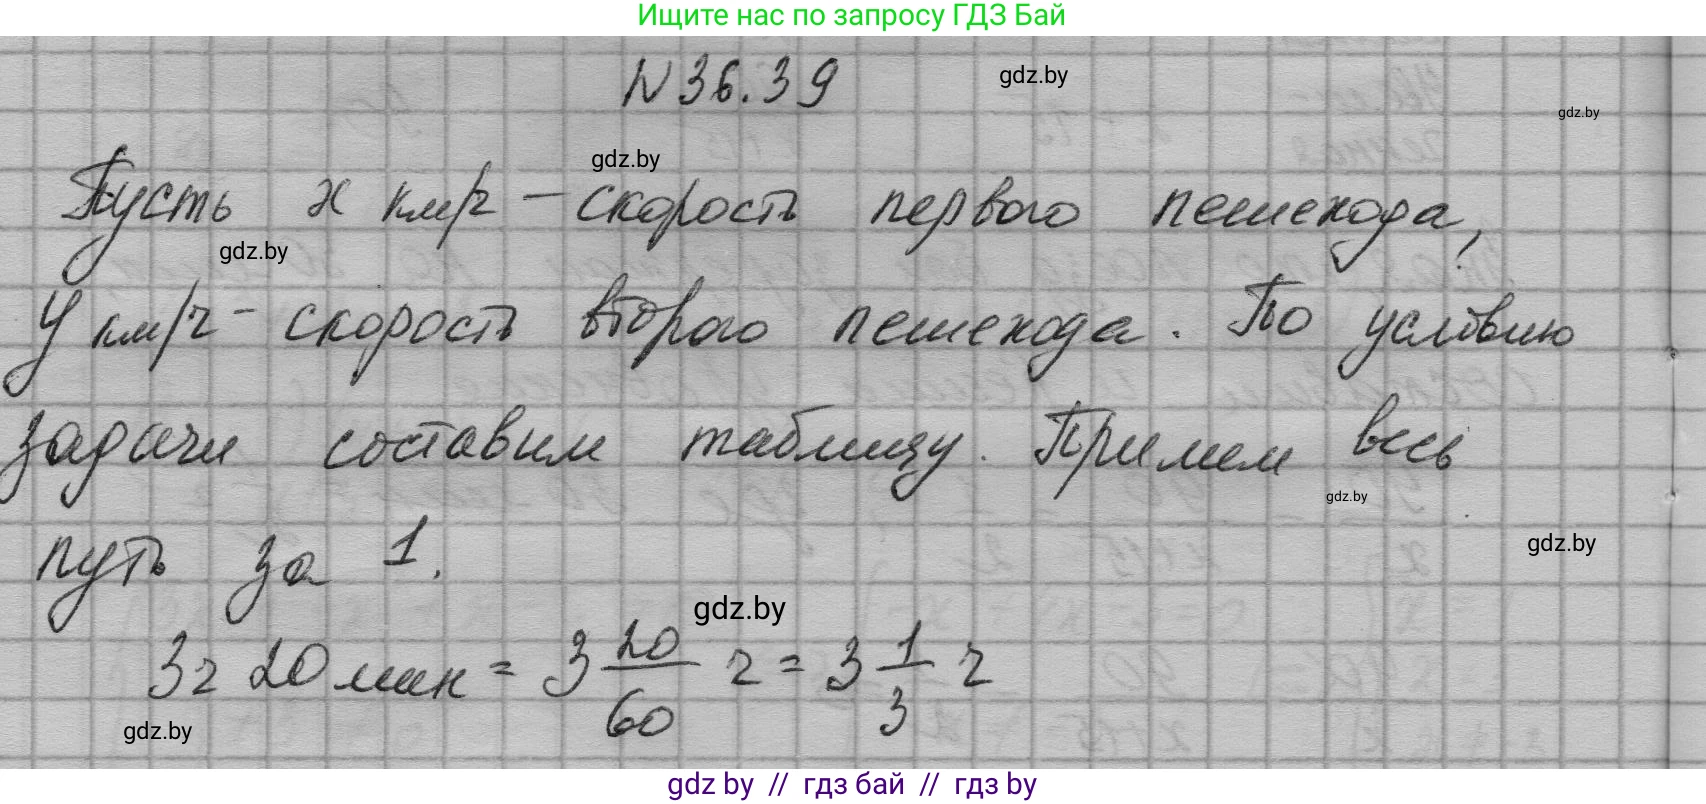 Ищите нас по запросу ГДЗ Бай
N 36.39
gdz.by
gdz.by
gdz.by
Пусть x км/ч - скорость первого пешехода,
gdz.by
y км/ч - скорость второго пешехода. По условию
задачи составим таблицу. Примем весь
gdz.by
путь за 1.
gdz.by
gdz.by
3ч 20 мин = 3 20/60 ч = 3 1/3 ч
gdz.by
gdz by // гдз бай // гдз by